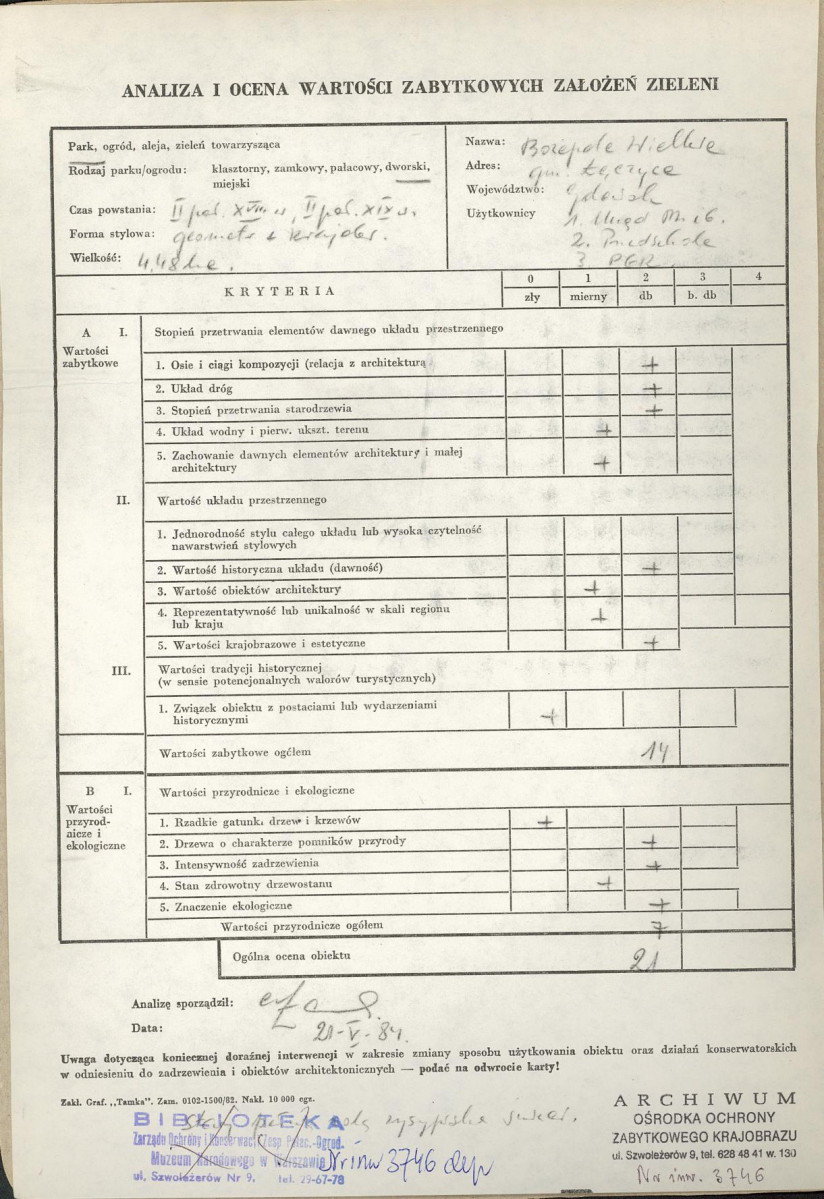 ANALIZA I OCENA WARTOŚCI ZABYTKOWYCH ZAŁOŻEŃ ZIELENI
Park, ogród, aleja, zieleń towarzysząca
Rodzaj parku/ogrodu: klasztorny, zamkowy, pałacowy, dworski,
miejski
Czas powstania: II poł. XVIII w, II poł. XIX w.
Forma stylowa: geometr + krajobr.
Wielkość: 4,48 ha.
Nazwa: Bożepole Wielkie
Adres: gm. Łęczyce
Województwo: Gdańsk
Użytkownicy 1. Urząd
2. Przedszkole
3. PGR
KRYTERIA
0 1 2 3 4
zły mierny db b. db
A I. Stopień przetrwania elementów dawnego układu przestrzennego
Wartości
zabytkowe
1. Osie i ciągi kompozycji (relacja z architekturą) +
2. Układ dróg +
3. Stopień przetrwania starodrzewia +
4. Układ wodny i pierw. ukszt. terenu +
5. Zachowanie dawnych elementów architektury i małej
architektury +
II. Wartość układu przestrzennego
1. Jednorodność stylu całego układu lub wysoka czytelność
nawarstwień stylowych
2. Wartość historyczna układu (dawność) +
3. Wartość obiektów architektury +
4. Reprezentatywność lub unikalność w skali regionu
lub kraju +
5. Wartości krajobrazowe i estetyczne +
III. Wartości tradycji historycznej
(w sensie potencjonalnych walorów turystycznych)
1. Związek obiektu z postaciami lub wydarzeniami
historycznymi +
Wartości zabytkowe ogółem 14
B I. Wartości przyrodnicze i ekologiczne
Wartości
przyrod-
nicze i
ekologiczne
1. Rzadkie gatunki drzew i krzewów +
2. Drzewa o charakterze pomników przyrody +
3. Intensywność zadrzewienia +
4. Stan zdrowotny drzewostanu +
5. Znaczenie ekologiczne +
Wartości przyrodnicze ogółem 7
Ogólna ocena obiektu 21
Analizę sporządził:
Data: 21-V-84.
Uwaga dotycząca koniecznej doraźnej interwencji w zakresie zmiany sposobu użytkowania obiektu oraz działań konserwatorskich
w odniesieniu do zadrzewienia i obiektów architektonicznych — podać na odwrocie karty!
Zakł. Graf. „Tamka". Zam. 0102-1500/82. Nakł. 10 000 egz.
BIBLIOTEKA
Zarządu Ochrony i Konserwacji Zesp. Pałac.-Ogrod.
Muzeum Narodowego w Warszawie
ul. Szwoleżerów Nr 9, tel. 29-67-78
Nr inw 3746 dep
ARCHIWUM
OŚRODKA OCHRONY
ZABYTKOWEGO KRAJOBRAZU
ul. Szwoleżerów 9, tel. 628 48 41 w. 130
Nr inw. 3746